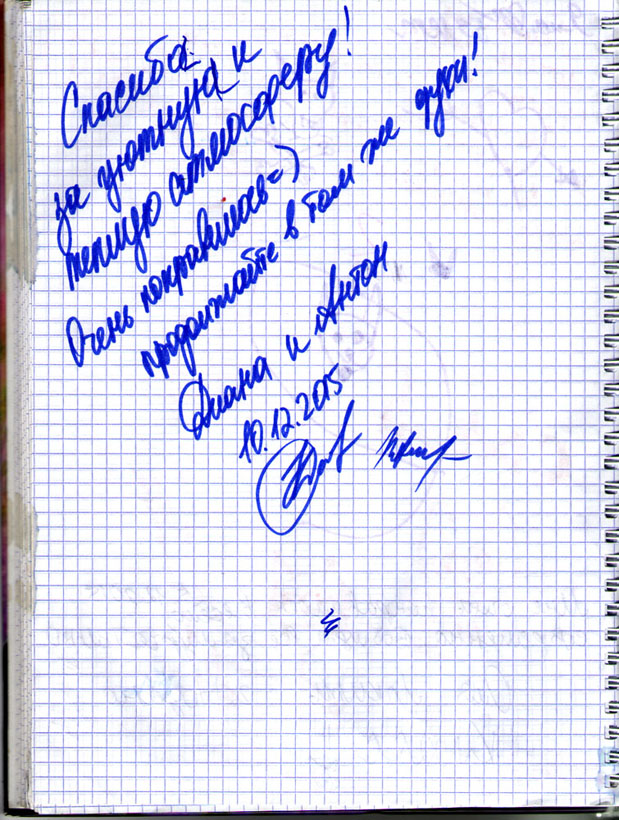 Спасибо
за уютную и
теплую атмосферу!
Очень понравилось=)
продолжайте в том же духе!
Диана и Антон
10.12.2015